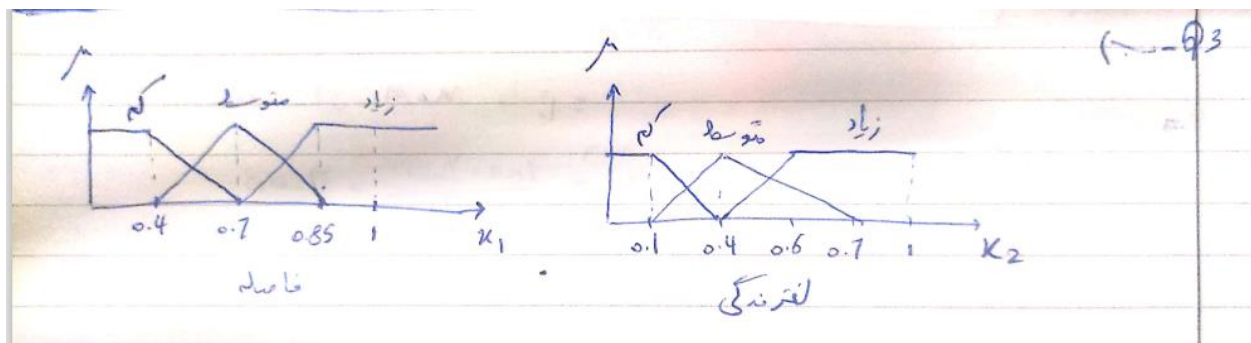 3 - ب)
μ
کم متوسط زیاد
0.4 0.7 0.85 1 x1
فاصله
μ
کم متوسط زیاد
0.1 0.4 0.6 0.7 1 x2
لغزندگی